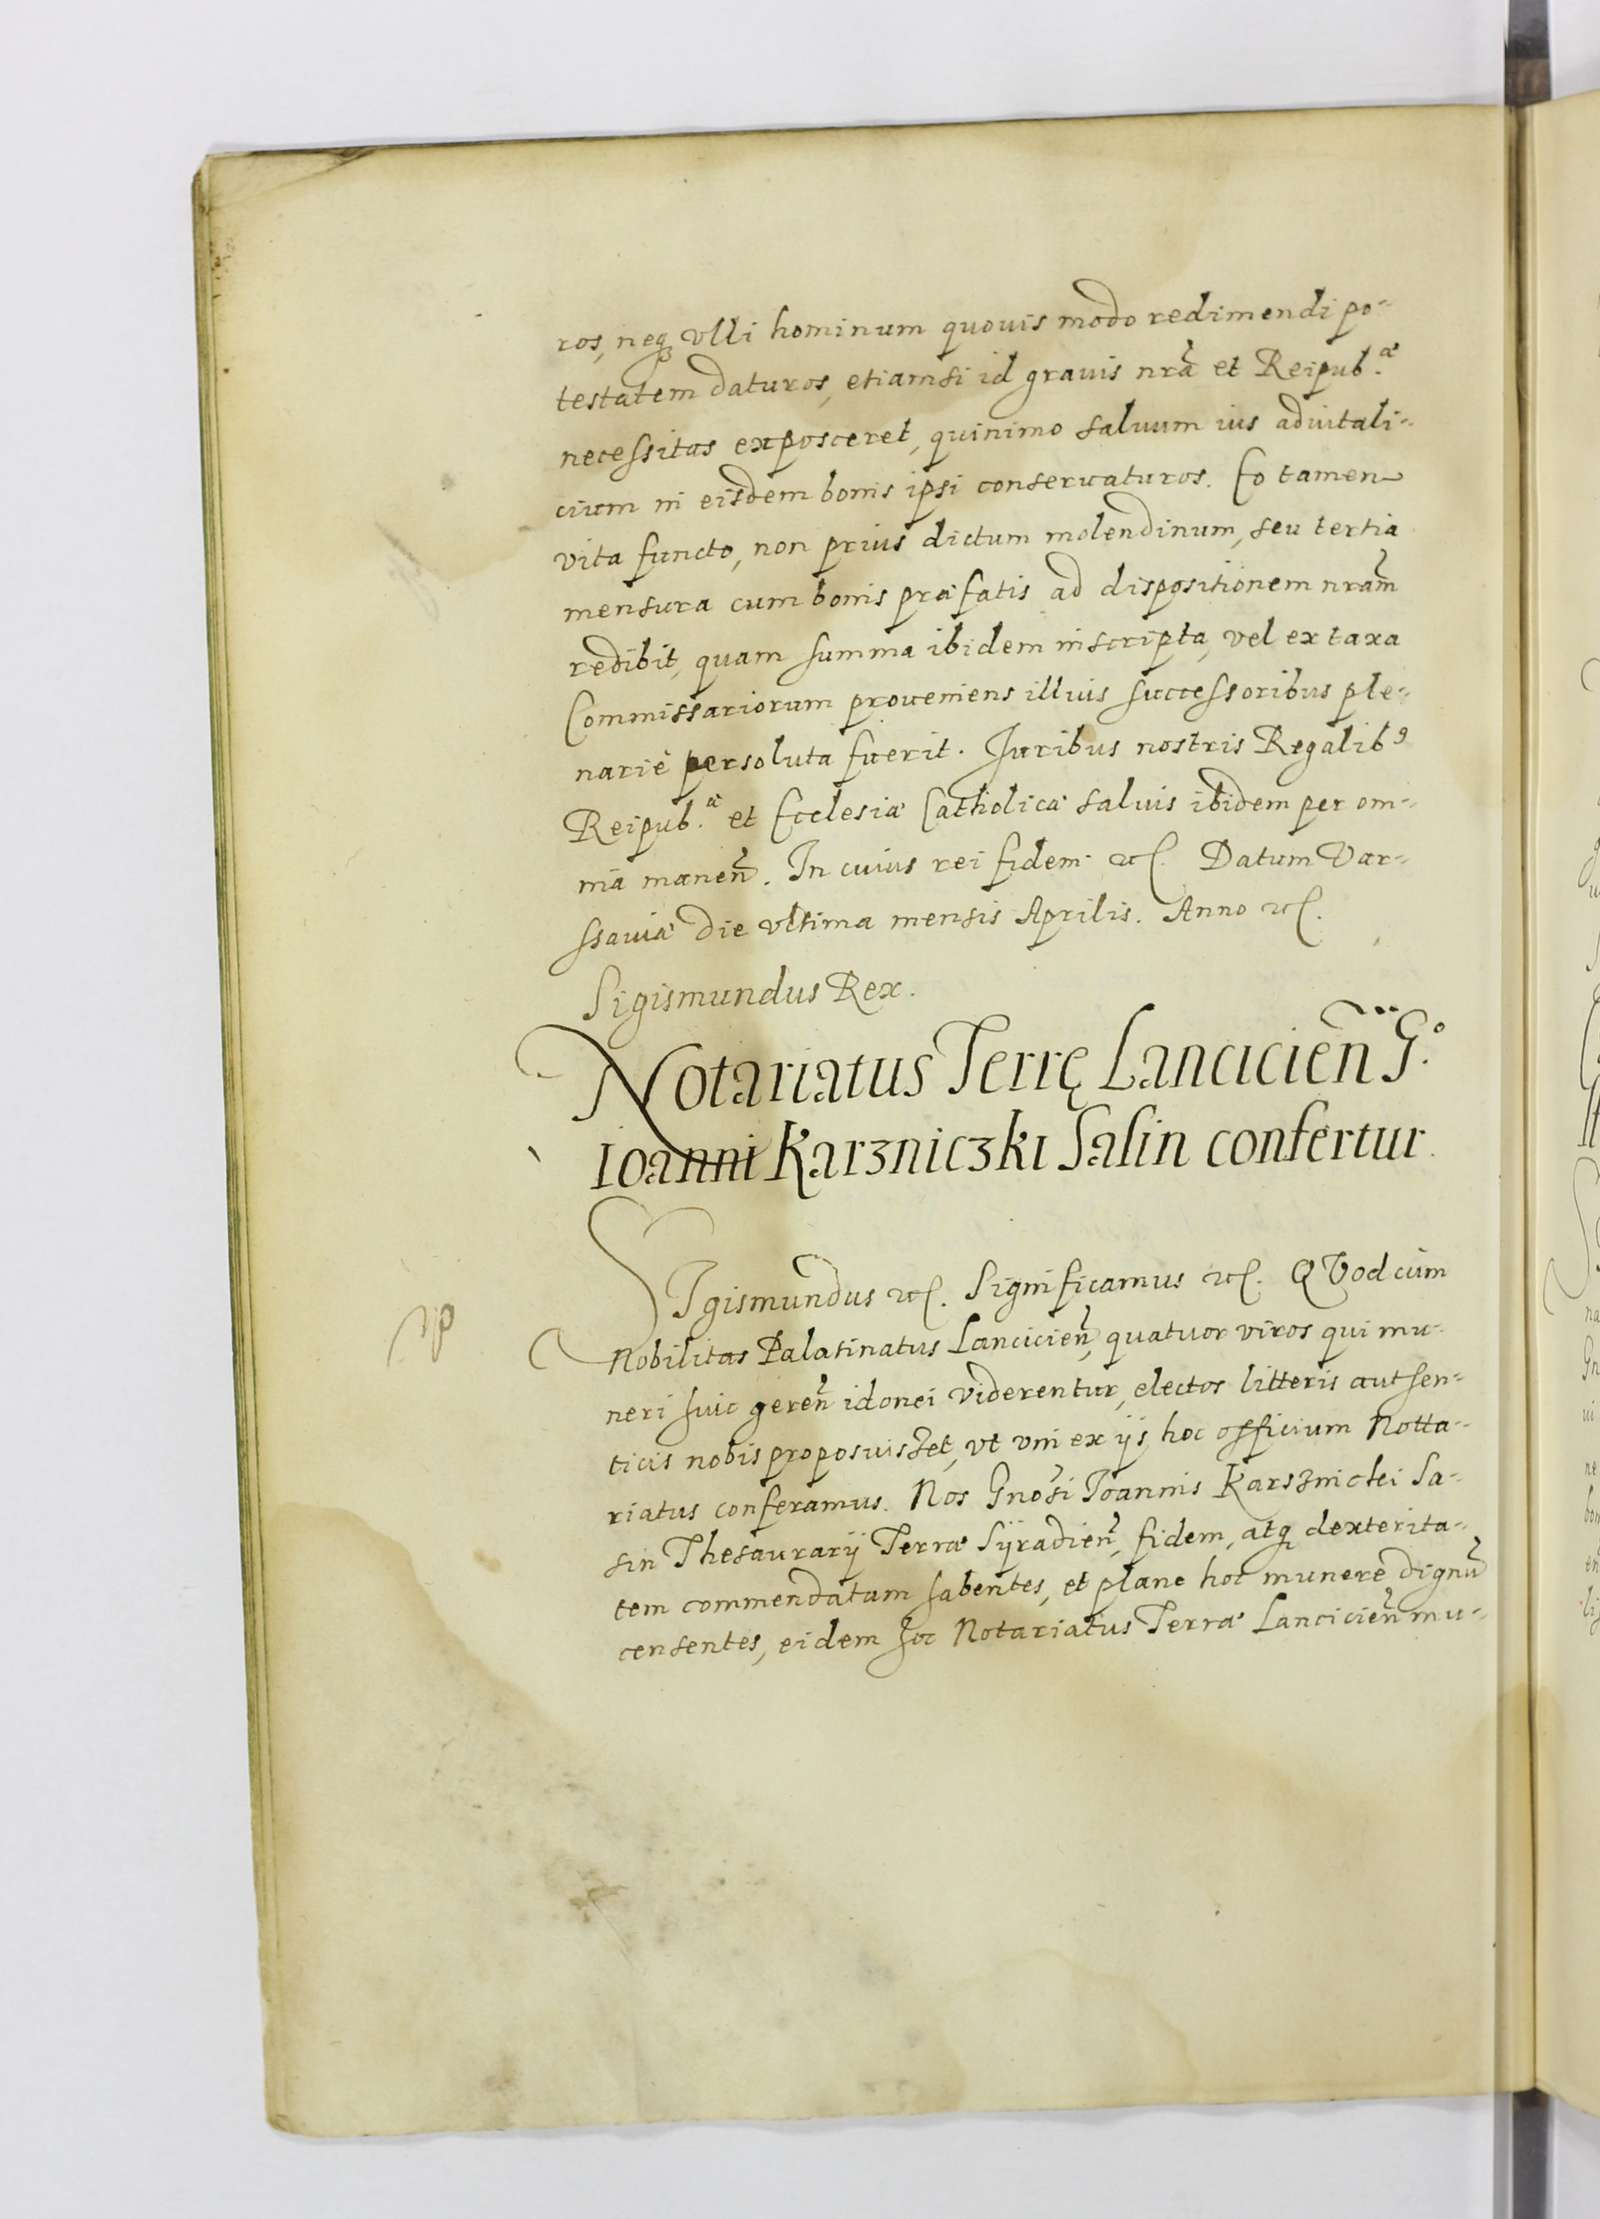 ros, neq; vlli hominum quouis modo redimendi po-
testatem daturos, etiamsi id grauis nrã et Reipub.æ
necessitas exposceret, quinimo saluum ius aduitali-
cium in eisdem bonis ipsi conseruaturos. Eo tamen
vita functo, non prius dictum molendinum, seu tertia
mensura cum bonis præfatis ad dispositionem nrãm
redibit, quam summa ibidem inscripta, vel ex taxa
Commissariorum proueniens illius successoribus ple-
nariè persoluta fuerit. Juribus nostris Regalib9
Reipub.æ et Ecclesiæ Catholicæ saluis ibidem per om-
nia manen̄. In cuius rei fidem etc. Datum Var-
ssauiæ die vltima mensis Aprilis. Anno etc.
Sigismundus Rex.
Notariatus Terrę Lancicien̄ G.o
Ioanni Karzniczki Sasin confertur.
SIgismundus etc. Significamus etc. QVod cùm
Nobilitas Palatinatus Lancicien̄, quatuor viros qui mu-
neri huic geren̄ idonei viderentur, electos litteris authen-
ticis nobis proposuisset, vt vni ex ijs hoc officium Notta-
riatus conferamus. Nos Gnosi Joannis Karsznicki Sa-
sin Thesaurarij Terræ Sijradien̄, fidem, atq; dexterita-
tem commendatam habentes, et plane hoc munere dignū
censentes, eidem hoc Notariatus Terræ Lancicien̄ mu-